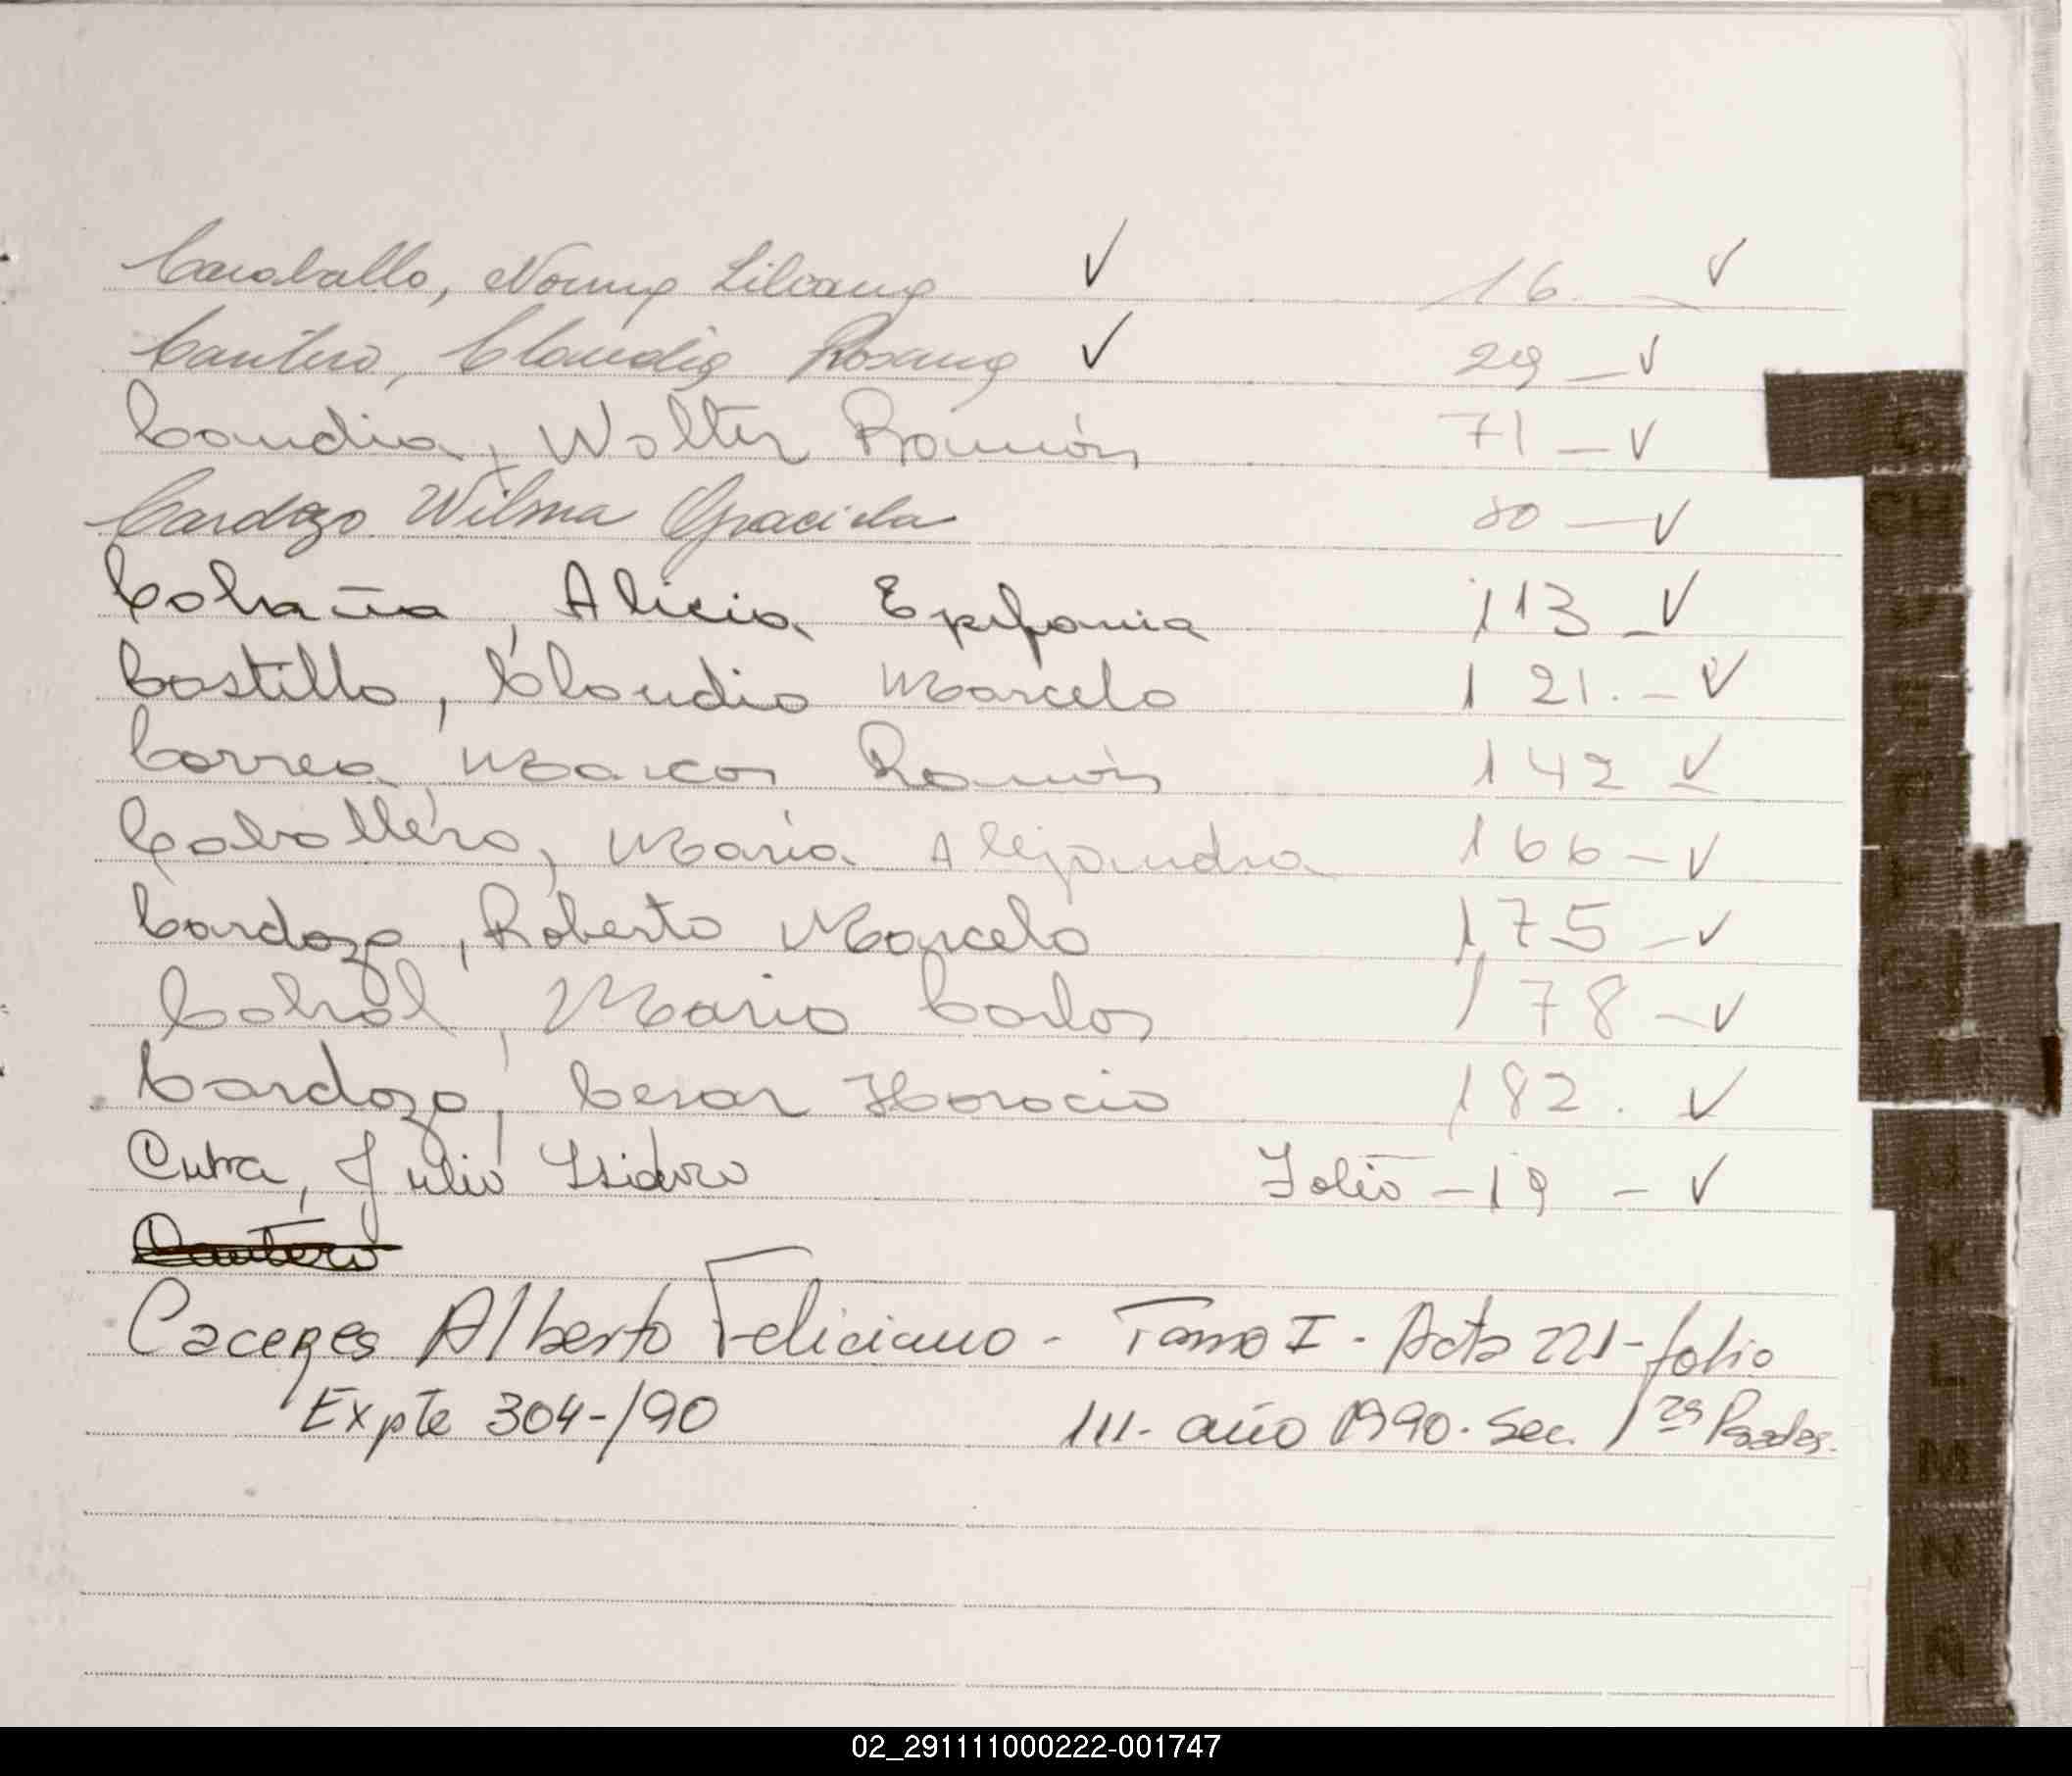 Caraballo, Norma Liliana ✓ 16. — ✓
Cantero, Claudia Rosana ✓ 29 — ✓
Candia, Walter Ramón 71 — ✓
Cardozo Wilma Graciela 80 — ✓
Cabaña, Alicia Epifania 113 — ✓
Castillo, Claudio Marcelo 121. — ✓
C
Correa Marcos Ramón 142 ✓
CH
Caballero, María Alejandra 166 — ✓
Cardozo, Roberto Marcelo 175 — ✓
Cabral, Mario Carlos 178 — ✓
Cardozo, Cesar Horacio 182. ✓
Cubra, Julio Isidoro Folio - 19 - ✓
J
Cantero
K
Caceres Alberto Feliciano - Tomo I - Acta 221 - folio
L
Expte 304-/90 111. año 1990. Sec.
M
N
02_291111000222-001747